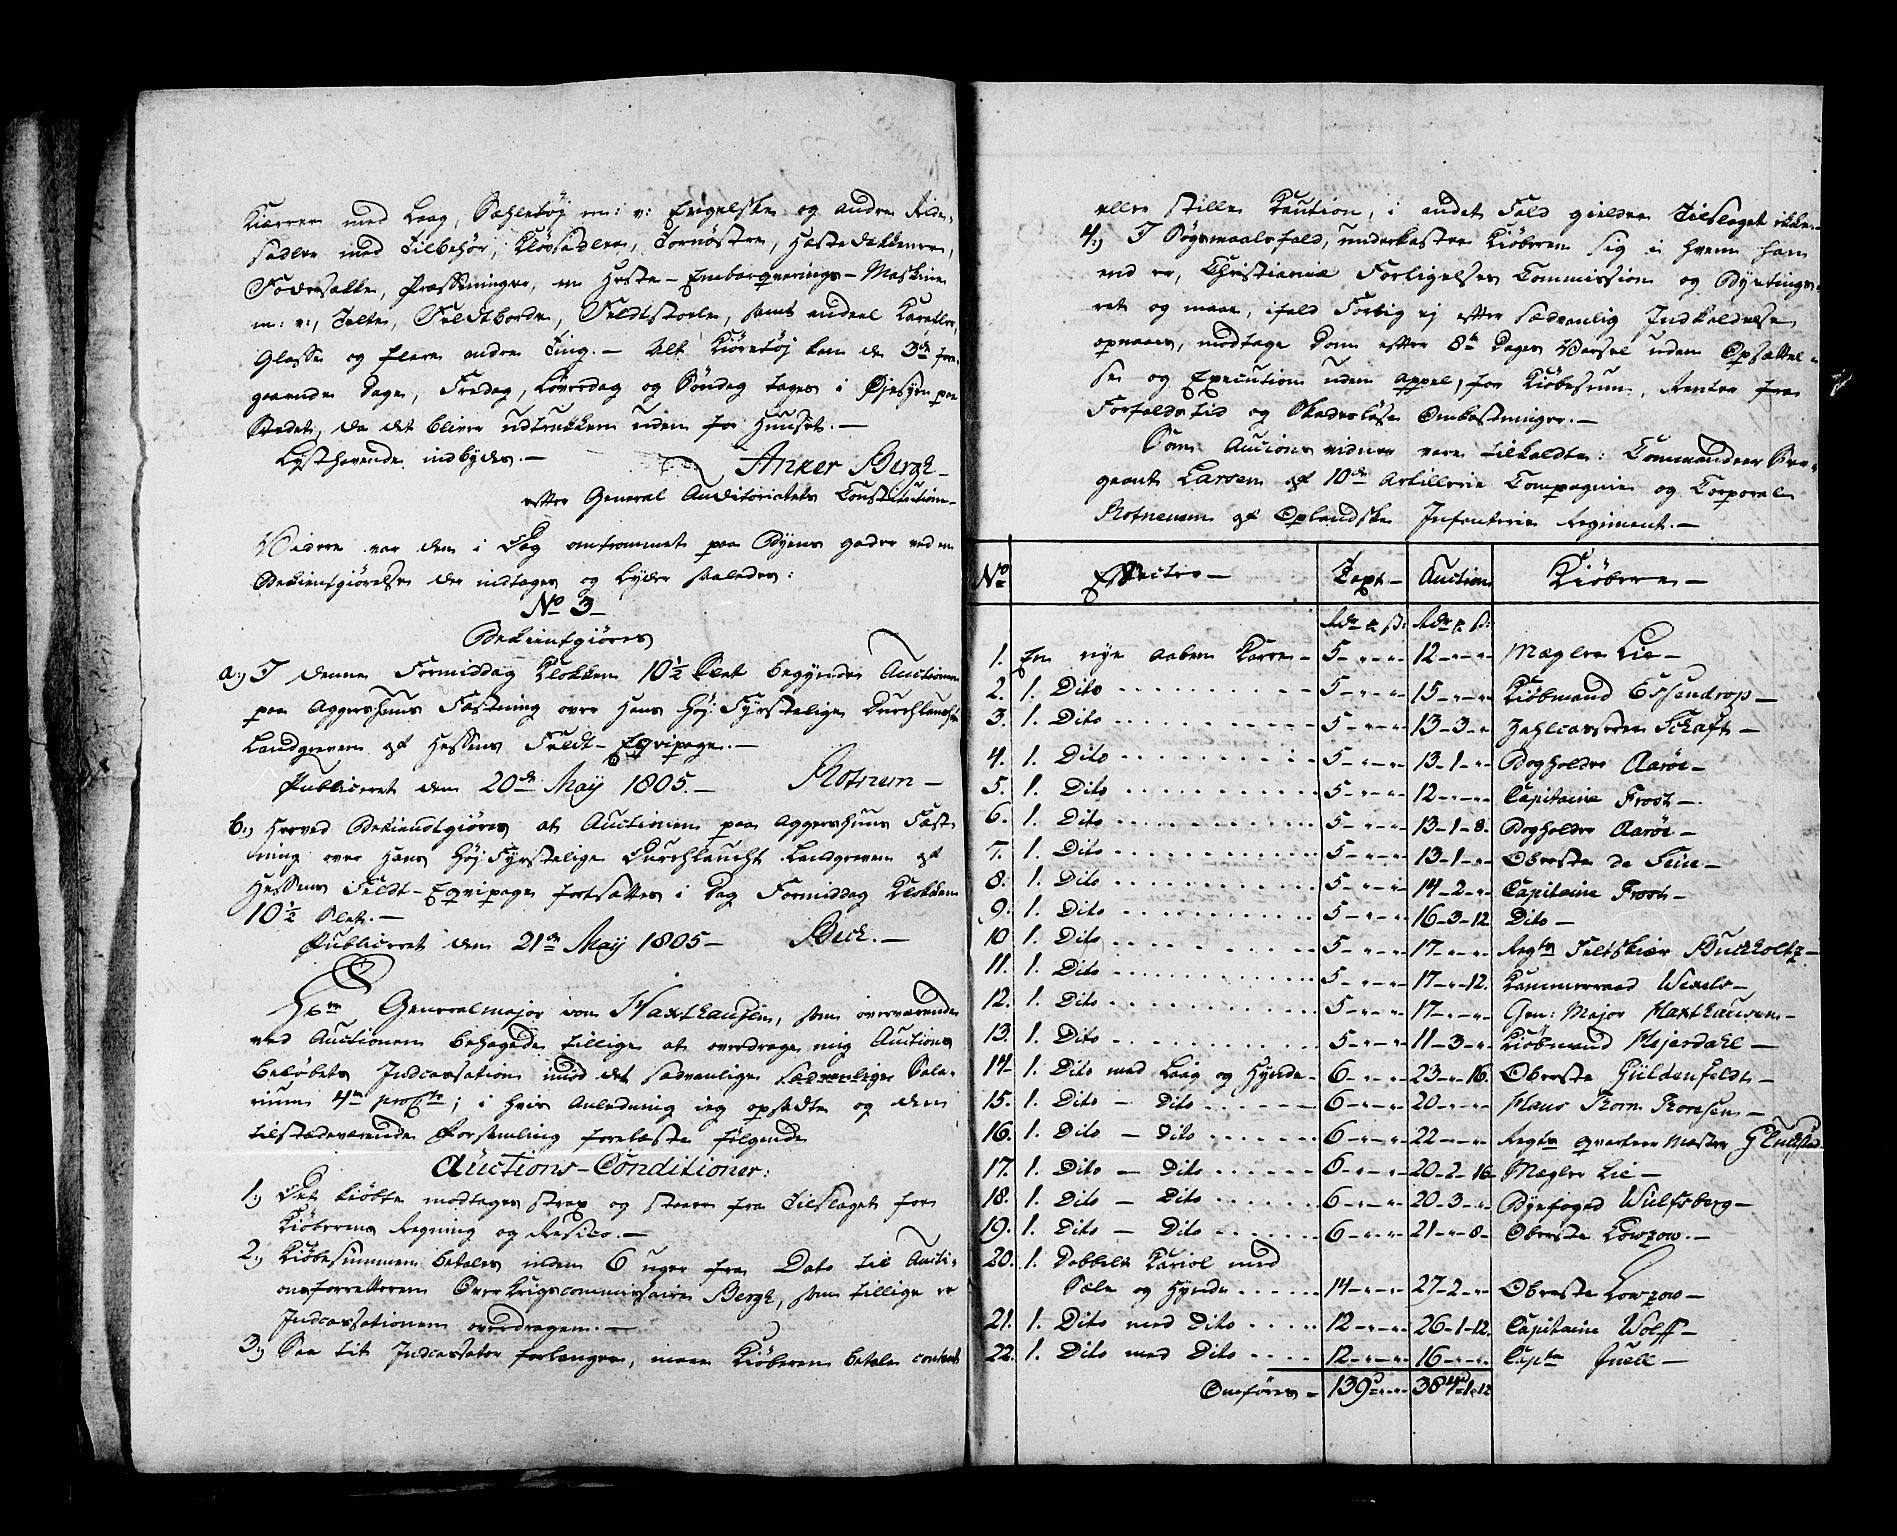 Kiærrer med Laag, Sahletøj m: v: Engelske og andre Ride-
sadler med Tilbehør, Kløvsadler, Tornøstre, Hestedækkener,
Fodersække, Præsseninger, en Heste-Embarqverings-Maskine
m: v:, Telte, Feldtborde, Feldtstoele, samt endeel Karafler,
Glasse og flere andre Ting. - Alt Kiøretøj kan de 3de fore-
gaaende Dage, Fredag, Løverdag og Søndag tages i Øjesyn paa
Stedet, da det bliver udtrukken uden for Huuset. -
Lysthavende indbydes. -
Anker Bergh -
efter General Auditoriatets Constitution -
Videre var den i Dag omtrommet paa Byens gader ved en
Bekientgiørelse der indtages og lyder saaledes:
No 3
Bekientgiøres
a.) I denne Formiddag Klokken 10½ Slet begynder Auctionen
paa Aggershuus Fæstning over Hans Høj-Fyrstelige Durchlaucht
Landgreven af Hessens Feldt-Eqvipage. -
Publiceret den 20de May 1805. - Rotnem -
b.) Herved Bekiendtgiøres at Auctionen paa Aggershuus Fæst-
ning over Hans Høj-Fyrstelige Durchlaucht Landgreven af
Hessens Feldt-Eqvipage fortsættes i Dag Formiddag Klokken
10½ Slet. -
Publiceret den 21de May 1805 - Beck. -
Hrr Generalmajor von Haxthausen, som overværende
ved Auctionen behagede tillige at overdrage mig Auctions
Beløbets Indcassation imod det sædvanlige Sala-
rium 4re proCto; i hvis Anledning ieg opstædte og den
tilstædeværende Forsamling forelæste følgende
Auctions-Conditioner:
1.) Det kiøbte modtages strax og staaer fra Tilslaget for
Kiøberens Regning og Risico. -
2.) Kiøbesummen betales inden 6 uger fra Dato til Aucti-
onsforretteren Over Krigscommissaire Bergh, som tillige er
Indcassationen overdragen. -
3.) Saa tit Indcassator forlanger, maae Kiøberen betale contant
eller stille Caution, i andet Fald gielder Tilslaget ikke. -
4.) I Søgsmaalsfald, underkaster Kiøberen sig i hvem han
end er, Christiania Forligelses Commission og Byetings-
ret og maae, ifald Forlig ej efter sædvanlig Indkaldelse
opnaaes, modtage Dom efter 8te Dages Varsel uden Opsættel-
se og Execution uden appel, for Kiøbesum, Renter fra
Forfaldstid og Skadesløse Omkostninger. -
Som Auctionsvidner vare tilkaldte: Commandeer Ser-
geant Larsen af 10de Artillerie Compagnie og Corporal
Rotnem af Oplandske Infanterie Regiment. -
No Effecter - Taxt - Auction Kiøbere -
Rdr ₰ ß: Rdr ₰ ß:
1. En nye aaben Karre - 5 - " - " 12 - " - " Mægler Lie -
2. 1. Dito 5 - " - " 15 - " - " Kiøbmand Essendrop -
3. 1. Dito 5 - " - " 13 - 3 - " Zahlcasserer Schafft -
4. 1. Dito 5 - " - " 13 - 1 - " Bogholder Aarøe -
5. 1. Dito 5 - " - " 12 - " - " Capitaine Frost -
6. 1. Dito 5 - " - " 13 - 1 - 8. Bogholder Aarøe -
7. 1. Dito 5 - " - " 13 - 1 - " Oberste de Seue -
8. 1. Dito 5 - " - " 14 - 2 - " Capitaine Frost -
9. 1. Dito 5 - " - " 16 - 3 - 12 Dito -
10 1. Dito 5 - " - " 17 - " - " Regts Feltskiær Buchholtz -
11. 1. Dito 5 - " - " 17 - " - 12. Kammerraad Wexels -
12. 1. Dito 5 - " - " 17 - " - " Gen: Major Haxthausen -
13. 1. Dito 5 - " - " 11 - 3 - " Kiöbmand Hejerdahl -
14 1. Dito med Laag og Hynde - 6 - " - " 23 - " - 16. Oberste Güldenfeldt -
15. 1. Dito - Dito 6 - " - " 20 - " - " Hans Thom Thoresen -
16. 1. Dito - Dito 6 - " - " 22 - " - " Regts Qvarteer Mester Glückstad
17. 1. Dito - Dito 6 - " - " 20 - 2 - 16 Mægler Lie -
18. 1. Dito - Dito 6 - " - " 20 - 3 - " Byefoged Wulfsberg -
19. 1. Dito - Dito 6 - " - " 21 - " - 8 - Oberste Lowzow. -
20. 1. Dobbelt Kariol med
Sæle og Hynde 14 - " - " 27 - 2 - " Oberste Lowzow -
21. 1. Dito med Dito 12 - " - " 26 - 1 - 12. Capitaine Wolff -
22. 1. Dito med Dito 12 - " - " 16 - " - " Captn Juell -
Omføres - 139 - " - " 384 - 1 - 12